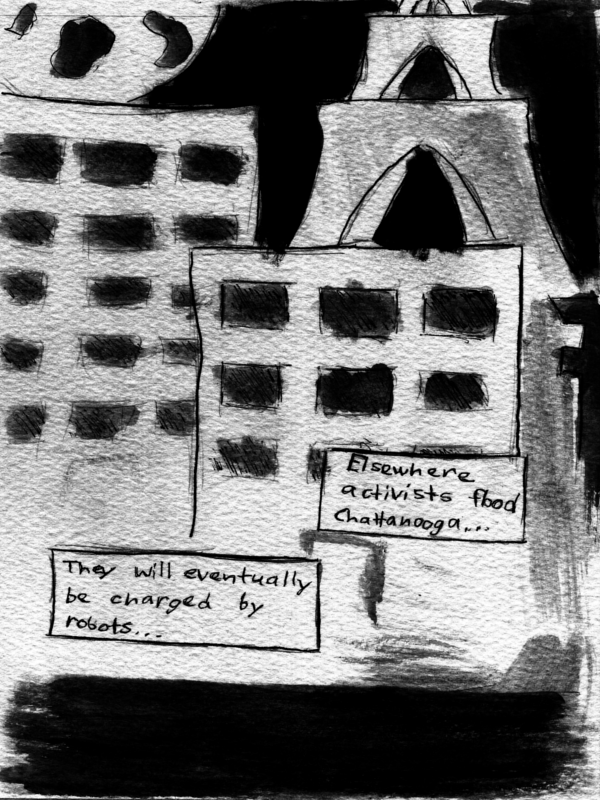 Elsewhere
activists flood
Chattanooga...
They will eventually
be charged by
robots...